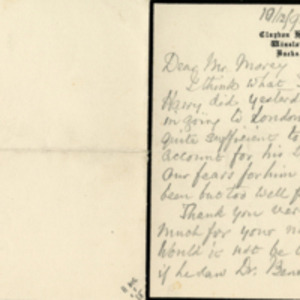 10/12/9
Claydon H
Winslo
Bucks
Dear Mr. Morey
I think what
Harry did yesterd
in going to London
quite sufficient to
account for his
Our fears for him
been but too well f
Thank you ver
much for your n
Would it not be
if he saw Dr. Ben